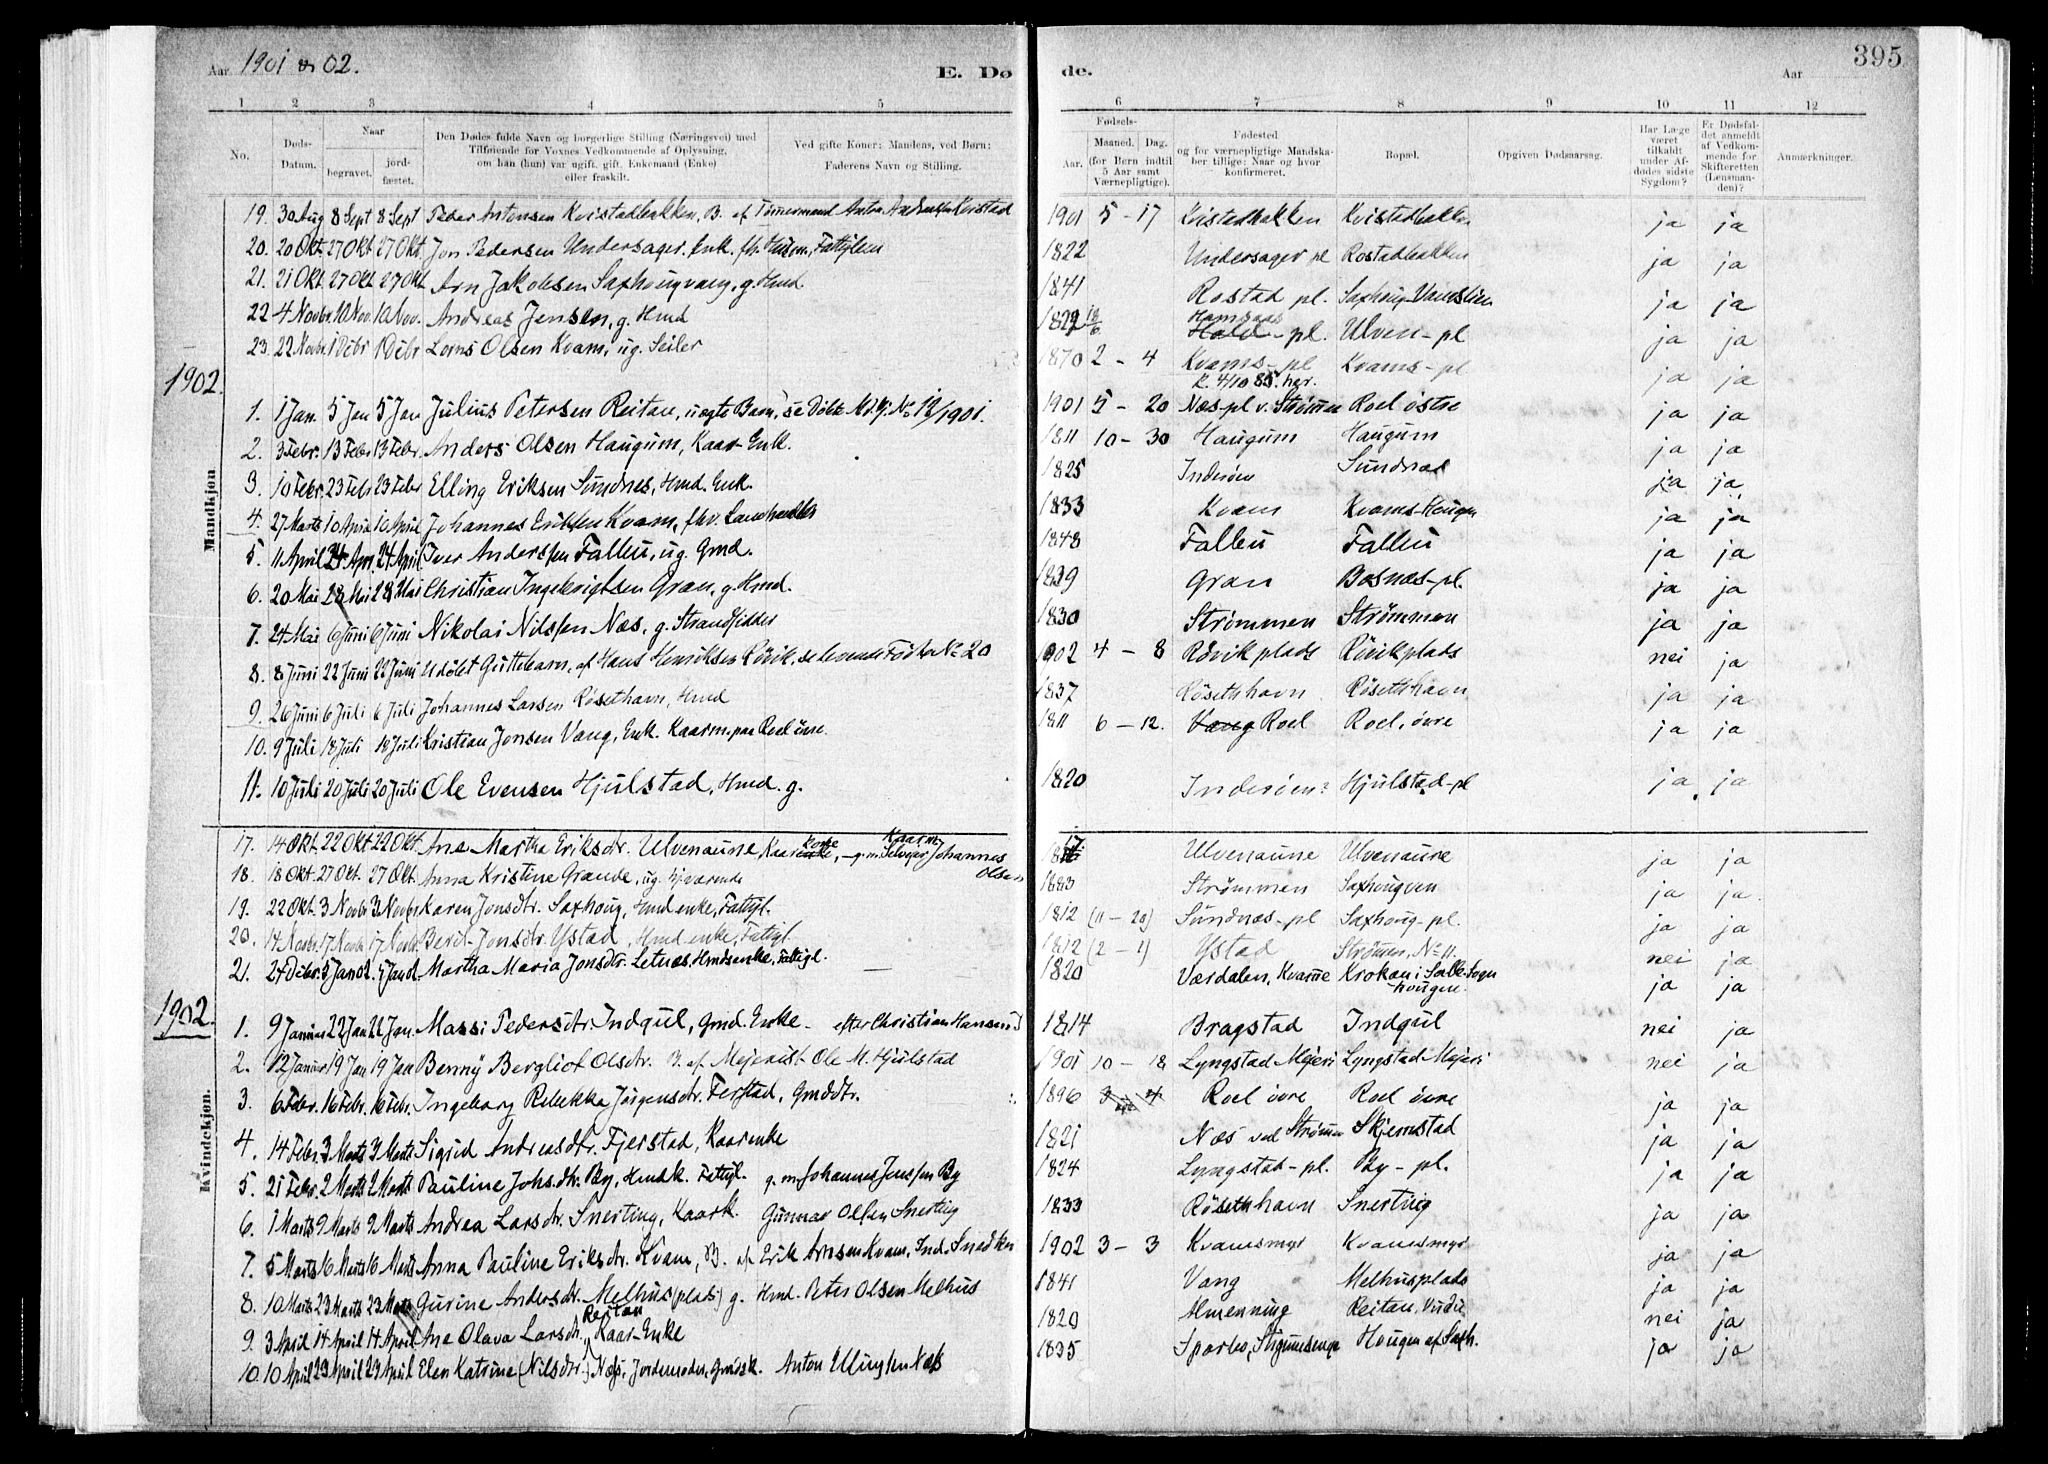 Aar 1901 & 02. E. Dø de. Aar 395
1 2 3 4 5 6 7 8 9 10 11 12
No. Døds-Datum. Naar begravet. jord-fæstet. Den Dødes fulde Navn og borgerlige Stilling (Næringsvei) med Tilføiende for Voxnes Vedkommende af Oplysning, om han (hun) var ugift, gift, Enkemand (Enke) eller fraskilt. Ved gifte Koner: Mandens, ved Børn: Faderens Navn og Stilling. Fødsels- Aar. Maaned. Dag. (for Børn indtil 5 Aar samt Værnepligtige). Fødested og for værnepligtige Mandskaber tillige: Naar og hvor konfirmeret. Bopæl. Opgiven Dødsaarsag. Har Læge været tilkaldt under Afdødes sidste Sygdom? Er Dødsfaldet anmeldt af Vedkommende for Skifteretten (Lensmanden)? Anmærkninger.
Mandkjøn
19. 30 Aug 8 Sept 8 Sept Peder Antonsen Kvistadbakken, B. af Tømmermand Anton Andersen Kvistad 1901 5 - 17 Kvistadbakken Kvistadbakken ja ja
20. 20 Okt. 27 Okt 27 Okt. Jon Pedersen Undersager. Enk. fh. Husm. Fattiglem 1822 Undersager pl Rostadbakken ja ja
21. 21 Okt. 27 Okt 27 Okt Arn Jakobsen Saxhougvang, g. Hmd 1841 Rostad pl. Saxhoug ja ja
22 4 Novbr 10 Nov. 10 Nov. Andreas Jensen, g. Hmd 1829 18/6 Hald - pl. Ulven - pl ja ja
23. 22 Novbr 1 Debr 1 Debr Lorns Olsen Kvam, ug. Seiler 1870 2 - 4 Kvams - pl Kvams - pl ja ja
k. 4/10 85. her.
1902.
1. 1 Jan. 5 Jan 5 Jan Julius Petersen Reitan, uægte Barn, se Døbte M.kj. No 12/1901. 1901 5 - 20 Næs-pl v. Strømmen Roel østre ja ja
2. 3 Febr. 13 Febr 13 Febr. Anders Olsen Haugum, Kaar-Enk. 1811 10 - 30 Haugum Haugum ja ja
3. 10 Febr. 23 Febr 23 Febr Elling Eriksen Sundnes, Hmd. Enk. 1825 Inderøen Sundnes ja ja
4. 27 Marts 10 April 10 April Johannes Eriksen Kvam, fhv. Landhandler 1833 Kvam Kvams-Haugen ja ja
5. 11 April 24 Apr. 24 April Iver Anderssen Falleu, ug. Gmd. 1848 Falleu Falleu ja ja
6. 20 Mai 28 Mai 28 Mai Christian Ingebrigtsen Gran, g. Hmd. 1839 Gran Bosnæs-pl. ja ja
7. 24 Mai 6 Juni 6 Juni Nikolai Nilssen Næs, g. Strandsidder 1830 Strømmen Strømmen ja ja
8. 8 Juni 22 Juni 22 Juni Udøbt Guttebarn, af Hans Henriksen Rövik, se levende Fødte No 20 902 4 - 8 Rövikplads Rövikplads nei ja
9. 26 Juni 6 Juli 6 Juli Johannes Larsen Røsethavn, Hmd 1837 Røsethhavn Røsethhavn ja ja
10. 9 Juli 18 Juli 18 Juli Kristian Jonsen Vang, Enk. Kaarm. paa Roel övre. 1811 6 - 12. Vang Roel Roel, övre ja ja
11. 10 Juli 20 Juli 20 Juli Ole Evensen Hjulstad, Hmd. g. 1820 Inderöen? Hjulstad-pl ja ja
Kvindekjøn.
17. 14 Okt. 22 Okt. 22 Okt. Ane Martha Eriksdtr. Ulvenaune, Kaarenke, kone - g. m. Selveier Kaarm Johannes Olsen 17 Ulvenaune Ulvenaune ja ja
18. 18 Okt. 27 Okt. 27 Okt. Anna Kristine Grande, ug. hjværende 1883 Strømmen Saxhougven ja ja
19. 22 Okt. 3 Novbr 3 Novbr Karen Jonsdtr. Saxhoug, Hmd enke, Fattigl. 1812 (11 - 20) Sundnæs-pl Saxhoug-pl. ja ja
20. 14 Novbr. 17 Novbr 17 Novbr. Berit Jonsdtr. Ystad, Hmd enke, Fattigl. 1812 (2 - 4) Ystad Strømen, No 11. nei ja
21. 24 Debr. 5 Jan 02 5 Jan 02 Martha Maria Jonsdtr. Letnæs, Hmdsenke, Fattigl. 1820 Værdalen, Kvamme Krokan i Salb. Sogn haugen. ja ja
1902.
1. 9 Januar 22 Jan 22 Jan. Massi Pedersdtr Indgul, Gmd. Enke - efter Christian Hansen I 1814 Bragstad Indgul nei ja
2. 12 Januar 19 Jan 19 Jan Benny Bergliot Olsdtr. B. af Mejerist Ole M. Hjulstad 1901 10 - 18 Lyngstad Mejeri Lyngstad Mejeri nei ja
3. 6 Febr. 16 Febr. 16 Febr. Ingeborg Rebekka Jørgensdtr. Ferstad, Gmddtr. 1896 Roel övre Roel övre ja ja
4. 14 Febr. 3 Marts 3 Marts Sigrid Andreasdtr. Fjerstad, Kaarenke 1821 Næs ved Strømm Skjemstad ja ja
5. 21 Febr. 2 Marts 2 Marts Pauline Johsdtr. By, Hmdk. Fattigl. g. m. Johannes Jenssen By 1824 Lyngstad-pl. By - pl. ja ja
6. 1 Marts 9 Marts 9 Marts Andrea Larsdtr. Snerting, Kaark. Gunnar Olsen Snerting 1833 Røsethhavn Snerting ja ja
7. 5 Marts 16 Marts 16 Marts Anna Pauline Eriksdtr. Kvam, B. af Erik Arnsen Kvam, Ind. Snedker 1902 3 - 3 Kvamsmyr Kvamsmyr ja ja
8. 10 Marts 23 Marts 23 Marts Gurine Andersdtr. Melhus (plads) g. Hmd. Peter Olsen Melhus 1841 Vang Melhusplads ja ja
9. 3 April 14 April 14 April Ane Olava Larsdtr. Reitan Kaar-Enke 1820 Almenning Reitan, nei ja
10. 10 April 23 April 23 April Elen Katrine (Nilsdtr.) Næs, Jordemoder, Gmdsk. Anton Ellingsen Næs 1835 Sparbo, Haugen af Saxh. ja ja